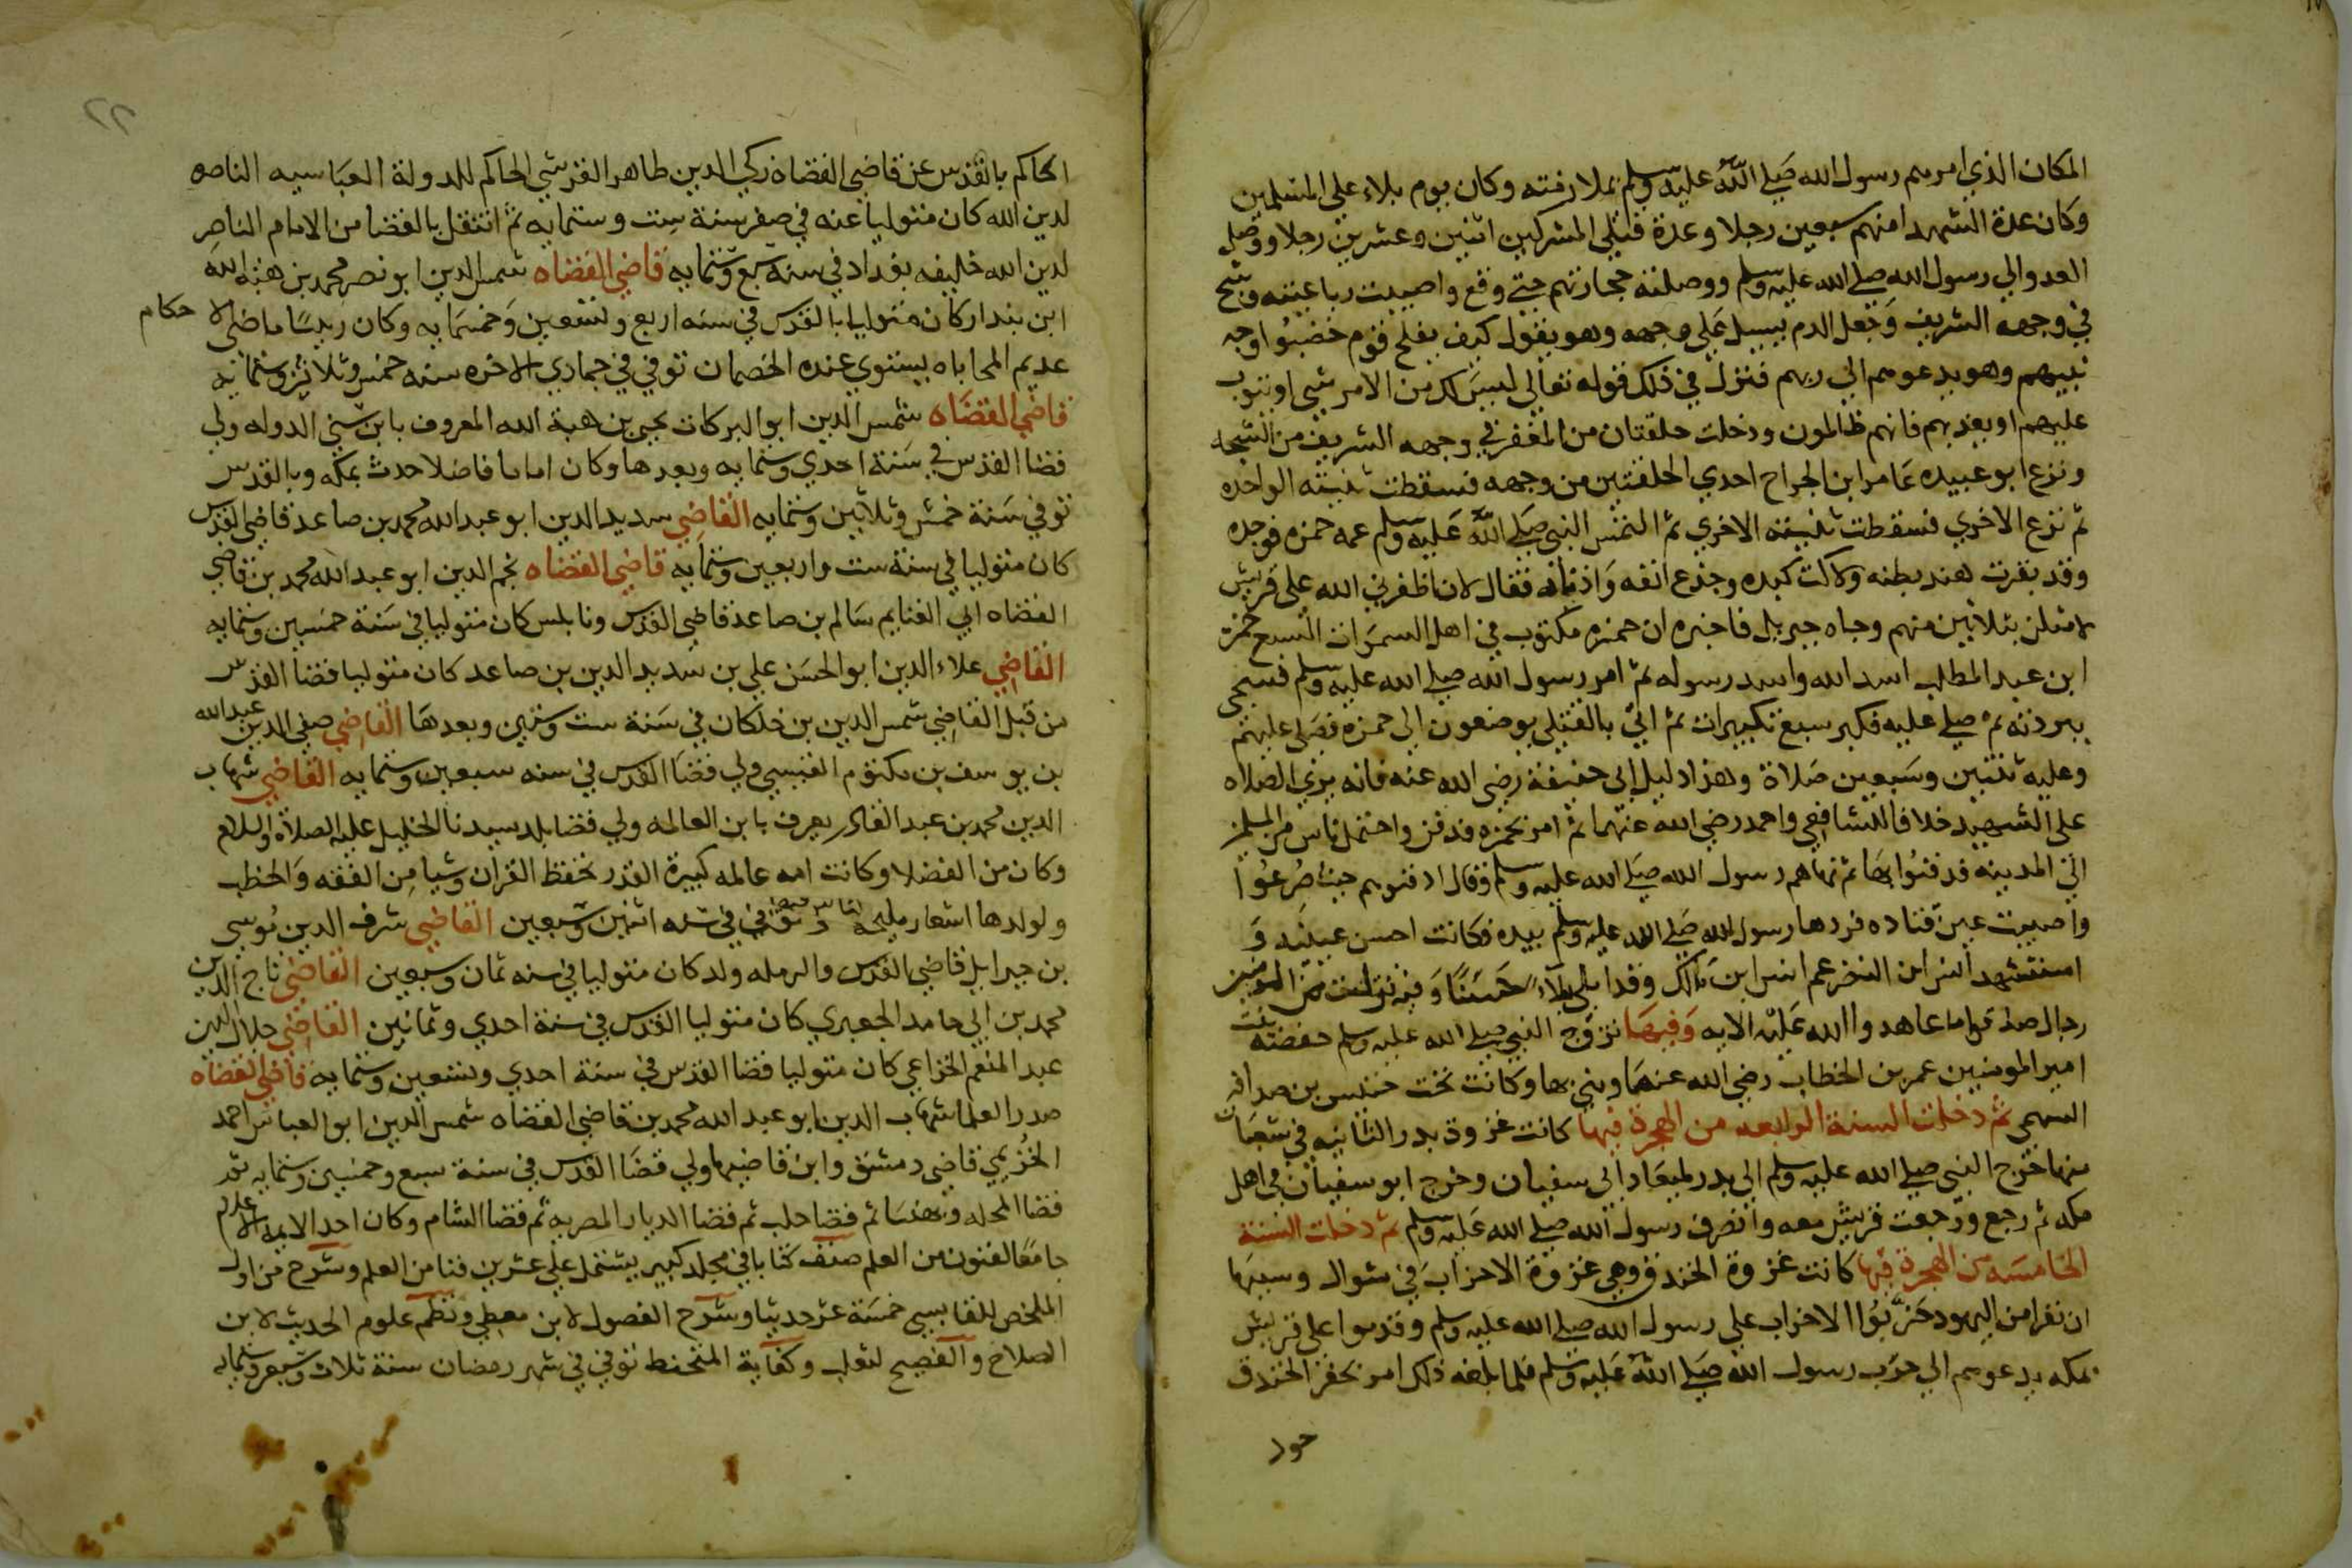 المكان الذي امرهم رسول الله صلي الله عليه وسلم بملازمته وكان يوم بلاء علي المسلمين
وكان عدة الشهدا منهم سبعين رجلا وعدة قتلي المشركين اثنين وعشرين رجلا ووصل
العدو الي رسول الله صلي الله عليه وسلم ووصلته حجارتهم حتي وقع واصيبت رباعيته وشج
في وجهه الشريف وجعل الدم يسيل علي وجهه وهو يقول كيف يفلح قوم خضبوا وجه
نبيهم وهو يدعوهم الي ربهم فنزل في ذلك قوله تعالي ليس لك من الامر شي او يتوب
عليهم او يعذبهم فانهم ظالمون ودخلت حلقتان من المغفر في وجهه الشريف من الشجه
ونزع ابو عبيده عامر ابن الجراح احدي الحلقتين من وجهه فسقطت ثنيته الواحده
ثم نزع الاخري فسقطت ثنيته الاخري ثم التمس النبي صلي الله عليه وسلم عمه حمزه فوجده
وقد بقرت هند بطنه ولاكت كبده وجدع انفه واذناه فقال لان اظفرني الله علي قريش
لامثلن بثلاثين منهم وجاه جبريل فاخبره ان حمزه مكتوب في اهل السموات السبع حمزة
ابن عبد المطلب اسد الله واسد رسوله ثم امر رسول الله صلي الله عليه وسلم فسجي
ببردته ثم صلي عليه فكبر سبع تكبيرات ثم اتي بالقتلي يوضعون الي حمزه فصلي عليهم
وعليه ثنتين وسبعين صلاة وهذا دليل ابي حنيفة رضي الله عنه فانه يري الصلاه
علي الشهيد خلافا للشافعي واحمد رضي الله عنهما ثم امر بحمزه فدفن واحتمل ناس من المسلمين
الي المدينه فدفنوا بها ثم نهاهم رسول الله صلي الله عليه وسلم وقال ادفنوهم حيث صرعوا
واصيبت عين قتاده فردها رسول الله صلي الله عليه وسلم بيده فكانت احسن عينيه و
استشهد انس ابن النضر عم انس ابن مالك وقد ابلي بلاء حسنا وفيه نزلت من المومنين
رجال صدقوا ما عاهدوا الله عليه الايه وفيها تزوج النبي صلي الله عليه وسلم حفصة بنت
امير المومنين عمر بن الخطاب رضي الله عنهما وبني بها وكانت تحت خنيس بن حذافه
السهمي ثم دخلت السنة الرابعه من الهجرة فيها كانت غزوة بدر الثانيه في شعبان
منها خرج النبي صلي الله عليه وسلم الي بدر لميعاد ابي سفيان وخرج ابو سفيان في اهل
مكه ثم رجع ورجعت قريش معه وانصرف رسول الله صلي الله عليه وسلم ثم دخلت السنة
الخامسه من الهجرة فيها كانت غزوة الخندق وهي غزوة الاحزاب في شوال وسببها
ان نفرا من اليهود حزبوا الاحزاب علي رسول الله صلي الله عليه وسلم وقدموا علي قريش
بمكه يدعوهم الي حرب رسول الله صلي الله عليه وسلم فلما بلغه ذلك امر بحفر الخندق
حود
٢٢
الحاكم بالقدس عن قاضي القضاة زكي الدين طاهر القرشي الحاكم للدولة العباسيه الناصر
لدين الله كان متوليا عنه في صفر سنة ست وستمايه ثم انتقل بالقضا من الامام الناصر
لدين الله خليفه بغداد في سنة سبع وستمايه قاضي القضاه شمس الدين ابو نصر محمد بن هبة الله
ابن بندار كان متوليا بالقدس في سنه اربع وتسعين وخمسمايه وكان رييسا ماضي الا
حكام
عديم المحاباه يستوي عنده الخصمان توفي في جمادي الاخره سنه خمس وثلاثين وستمايه
قاضي القضاه شمس الدين ابو البركات يحيي بن هبة الله المعروف بابن سني الدوله ولي
قضا القدس في سنة احدي وستمايه وبعدها وكان اماما فاضلا حدث بمكه وبالقدس
توفي سنة خمس وثلاثين وستمايه القاضي سديد الدين ابو عبد الله محمد بن صاعد قاضي القدس
كان متوليا في سنة ست واربعين وستمايه قاضي القضاه نجم الدين ابو عبد الله محمد بن قاضي
القضاه ابي الغنايم سالم بن صاعد قاضي القدس ونابلس كان متوليا في سنة خمسين وستمايه
القاضي علاء الدين ابو الحسن علي بن سديد الدين بن صاعد كان متوليا قضا القدس
من قبل القاضي شمس الدين بن خلكان في سنة ست وستين وبعدها القاضي صفي الدين عبد الله
بن يوسف بن مكتوم القيسي ولي قضا القدس في سنه سبعين وستمايه القاضي شهاب
الدين محمد بن عبد القادر يعرف بابن العالمه ولي قضا بلد سيدنا الخليل عليه الصلاة والسلام
وكان من الفضلا وكانت امه عالمه كبيرة القدر تحفظ القران وشيا من الفقه والخطب
ولولدها اشعار مليحه وتوفي في سنه اثنين وسبعين القاضي شرف الدين موسي
بن جبرايل قاضي القدس والرمله ولد كان متوليا في سنه ثمان وسبعين القاضي تاج الدين
محمد بن ابي حامد الجعبري كان متوليا القدس في سنة احدي وثمانين القاضي جلال الدين
عبد المنعم الخزاعي كان متوليا قضا القدس في سنة احدي وتسعين وستمايه قاضي القضاه
صدر العلما شهاب الدين ابو عبد الله محمد بن قاضي القضاه شمس الدين ابو العباس احمد
الخويي قاضي دمشق وابن قاضيها ولي قضا القدس في سنة سبع وخمسين وستمايه ثم
قضا المحله وبهنسا ثم قضا حلب ثم قضا الديار المصريه ثم قضا الشام وكان احد الايمه الاعلام
جامعا لفنون من العلم صنف كتابا في مجلد كبير يشتمل علي عشرين فنا من العلم وشرح من اول
الملخص للقابسي خمسة عشر حديثا وشرح الفصول لابن معطي ونظم علوم الحديث لابن
الصلاح والفصيح لثعلب وكفاية المتحفظ توفي في شهر رمضان سنة ثلاث وتسعين وستمايه